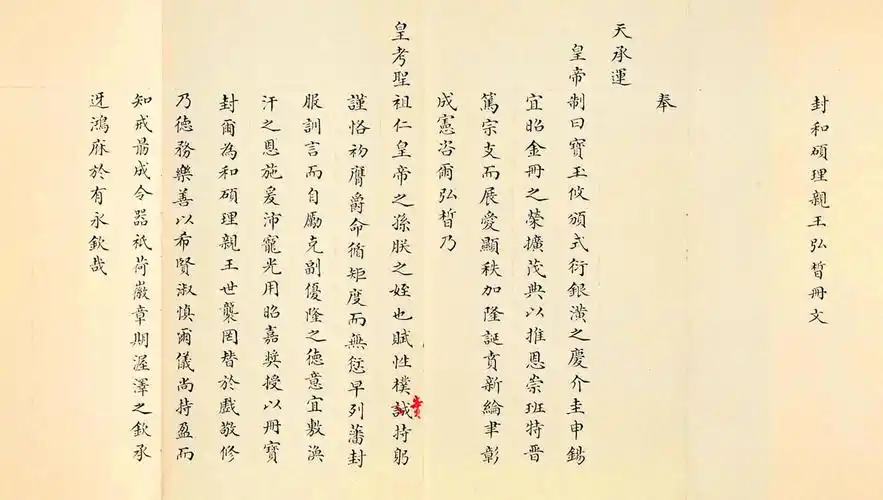 封和碩理親王弘晳冊文
奉
天承運
皇帝制曰寶玉攸頒式衍銀潢之慶介圭申錫
宜昭金冊之榮擴茂典以推恩崇班特晋
篤宗支而展愛顯秩加隆誕賁新綸聿彰
成憲咨爾弘晳乃
皇考聖祖仁皇帝之孫朕之姪也賦性樸誠持躬
謹恪初膺爵命循矩度而無愆早列藩封
服訓言而自勵克副優隆之德意宜敷渙
汗之恩施爰沛寵光用昭嘉奬授以冊寶
封爾為和碩理親王世襲罔替於戲敬修
乃德務樂善以希賢淑慎爾儀尚持盈而
知戒勗成令器祇荷徽章期渥澤之欽承
迓鴻庥於有永欽哉